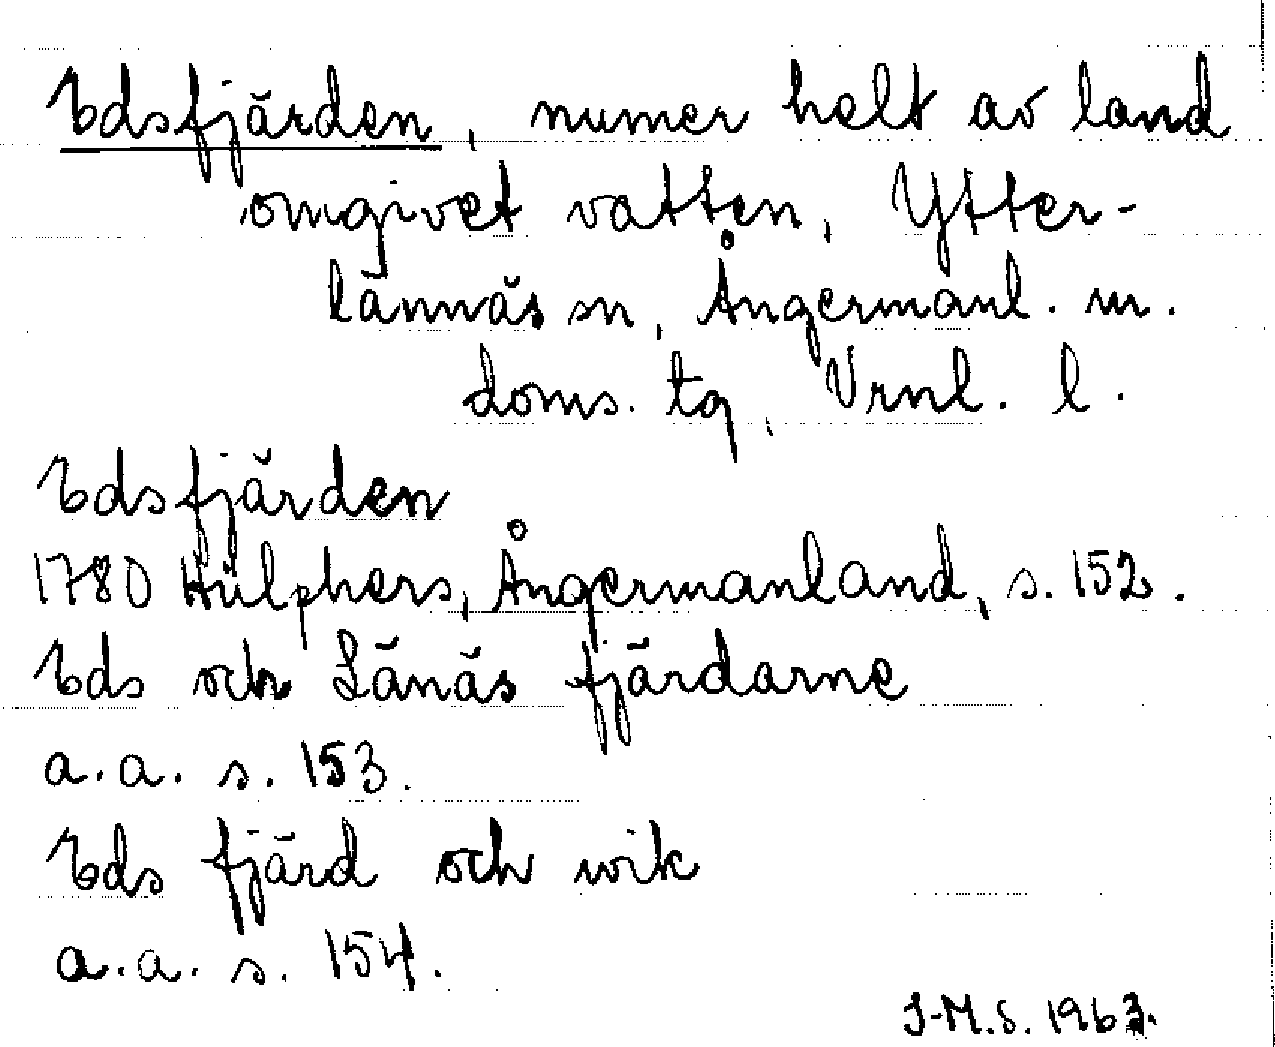 Edsfjärden, numer helt av land
omgivet vatten, Ytter-
lännäs sn, Ångermanl. m.
doms. tg, Vrnl. l.
Edsfjärden
1780 Hülphers, Ångermanland, s. 152.
Eds och Länäs fjärdarne
a.a. s. 153.
Eds fjärd och wik
a.a. s. 154.
J-M.S. 1963.